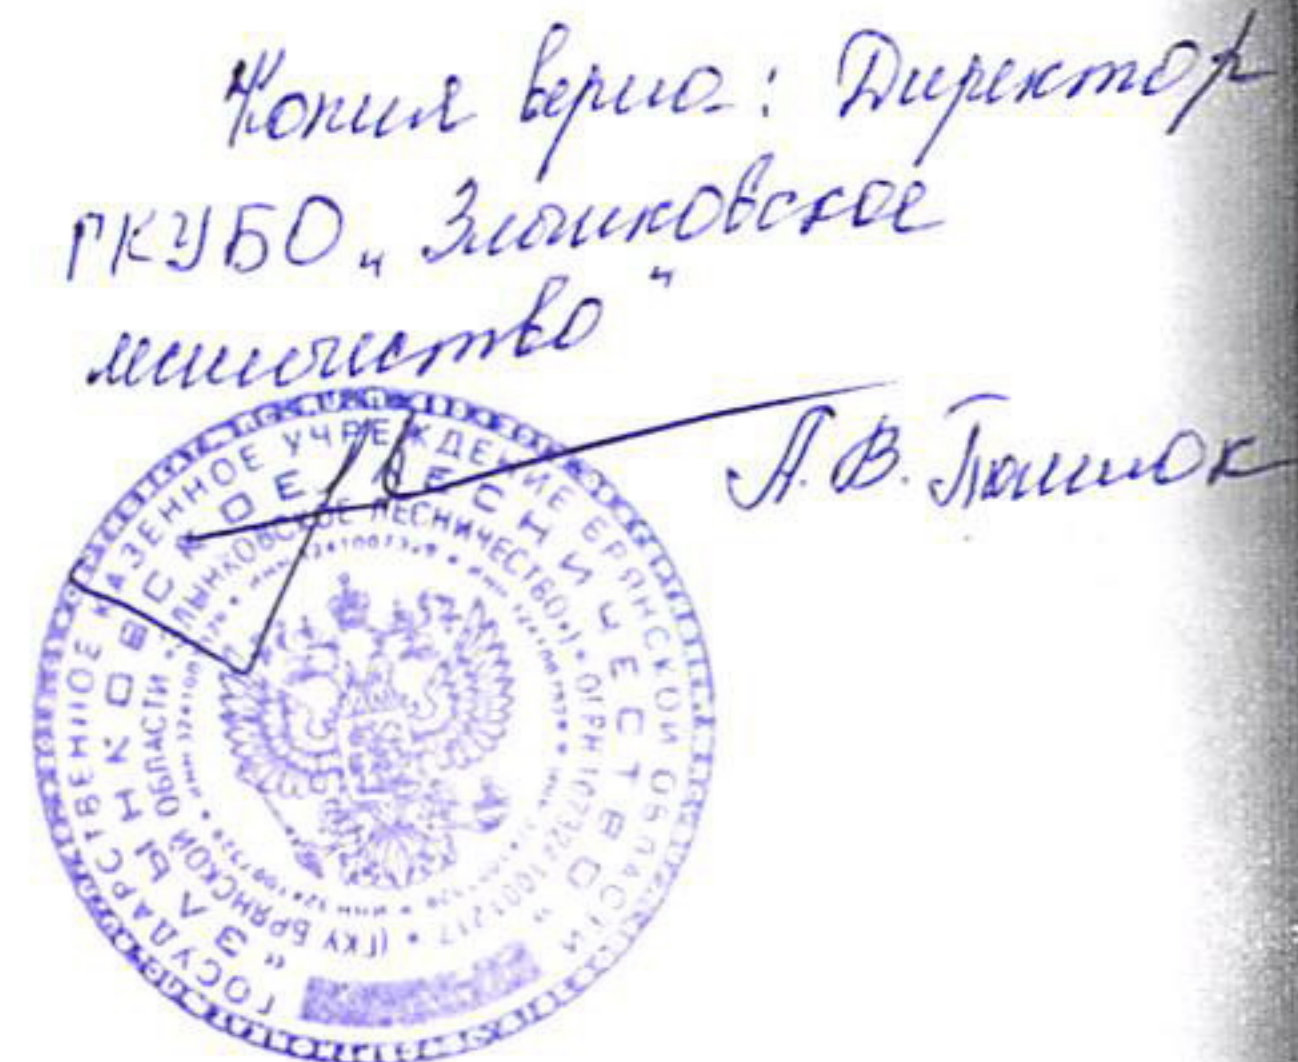 Копия верна: Директор
ГКУБО „Злынковское
лесничество"
А.В.
ГОСУДАРСТВЕННОЕ КАЗЕННОЕ УЧРЕЖДЕНИЕ БРЯНСКОЙ ОБЛАСТИ
"ЗЛЫНКОВСКОЕ ЛЕСНИЧЕСТВО"
(ГКУ БРЯНСКОЙ ОБЛАСТИ «ЗЛЫНКОВСКОЕ ЛЕСНИЧЕСТВО») • ОГРН